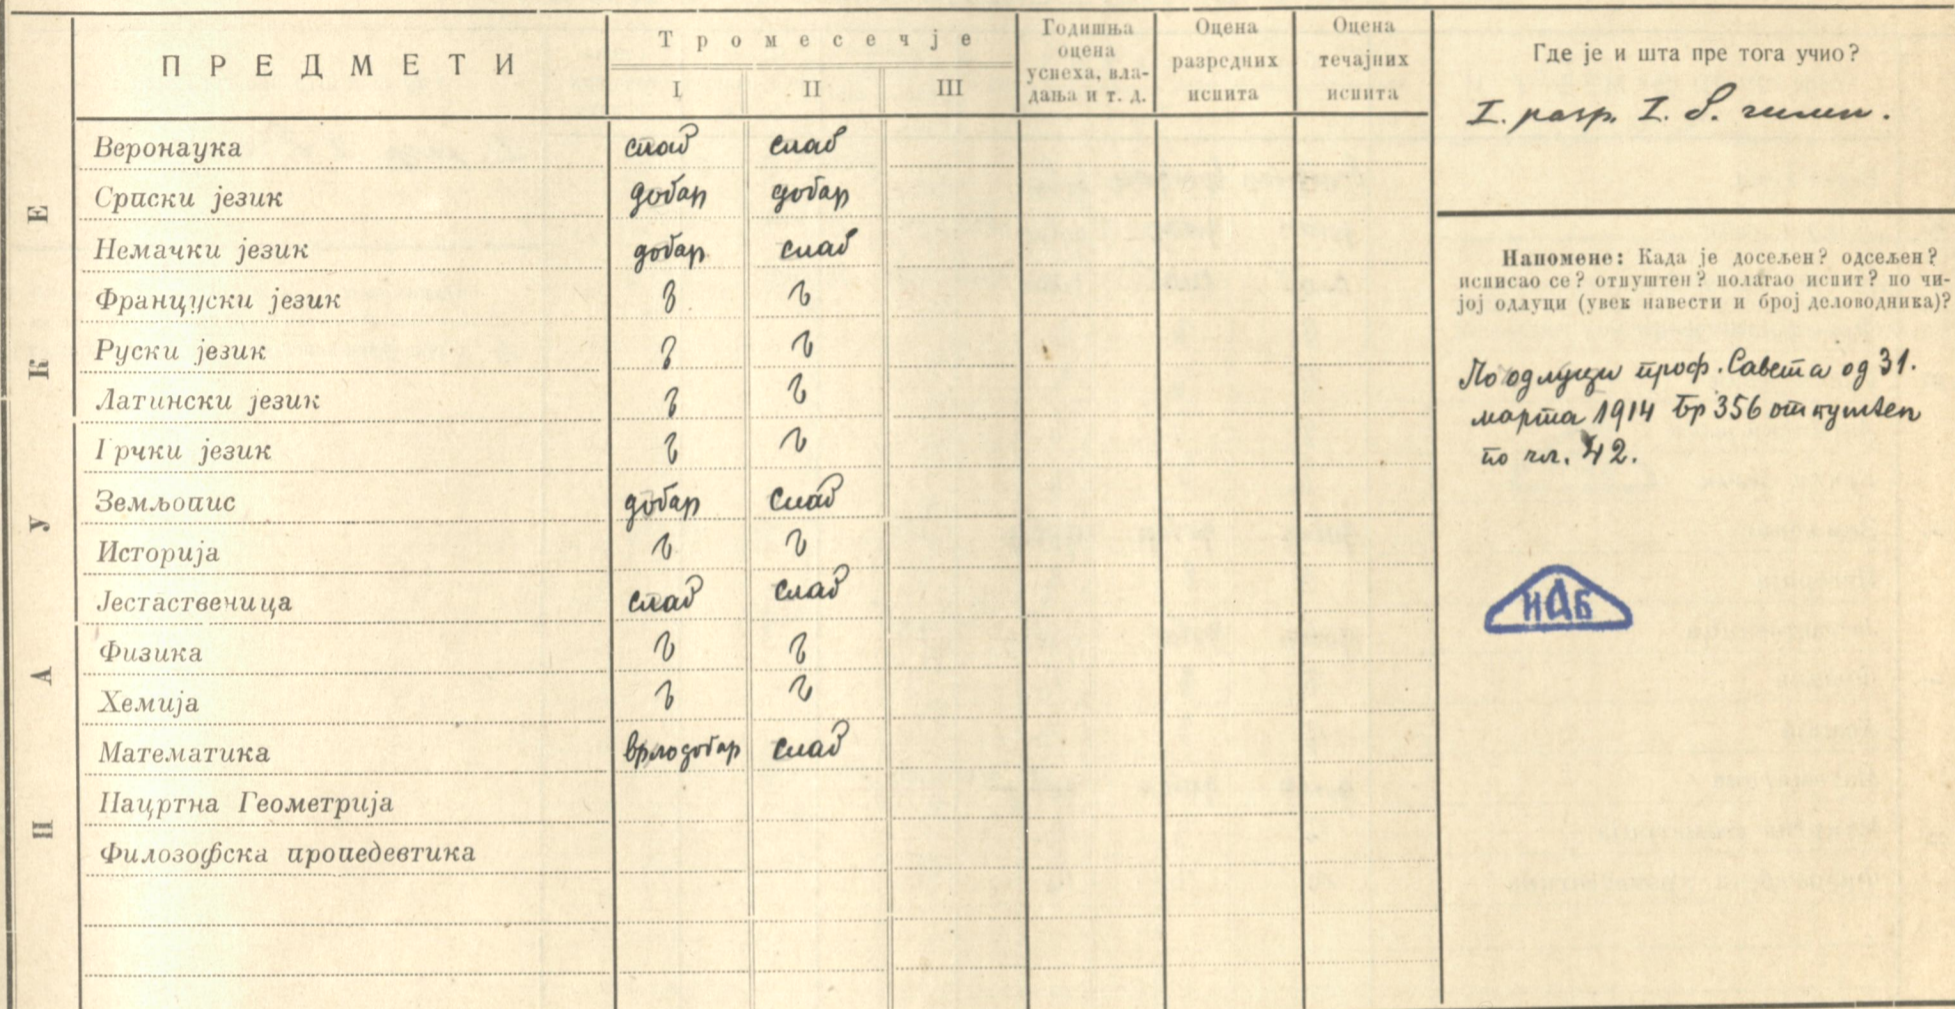 ПРЕДМЕТИ
Тромесечје
I II III
Годишња оцена успеха, вла-дања и т. д.
Оцена разредних испита
Оцена течајних испита
НАУКЕ
Веронаука слаб слаб
Српски језик добар добар
Немачки језик добар слаб
Француски језик
Руски језик
Латински језик
Грчки језик
Земљопис добар слаб
Историја
Јестаственица слаб слаб
Физика
Хемија
Математика врлодобар слаб
Нацртна Геометрија
Филозофска пропедевтика
Где је и шта пре тога учио?
I. разр. I. б. гимн.
Напомене: Када је досељен? одсељен?
исписао се? отпуштен? полагао испит? по чи-
јој одлуци (увек навести и број деловодника)?
По одлуци проф. Савета од 31.
марта 1914 Бр 356 отпуштен
по чл. 42.
НАБ